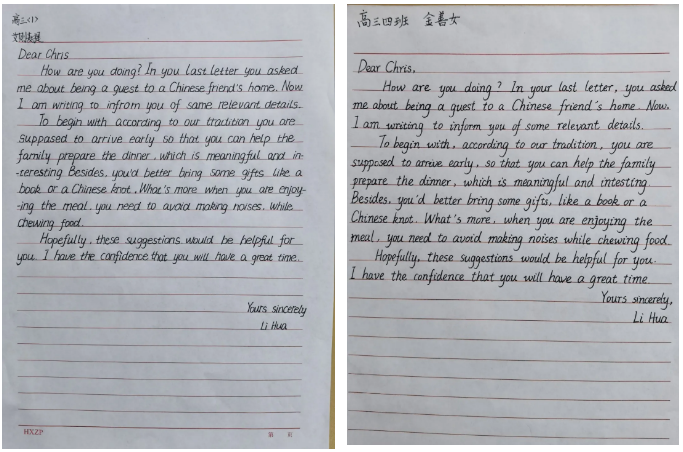 高三(1)
Dear Chris
How are you doing? In you last letter you asked
me about being a guest to a Chinese friend's home. Now
I am writing to infrom you of some relevant details.
To begin with according to our tradition you are
supposed to arrive early so that you can help the
family prepare the dinner, which is meaningful and in-
-teresting Besides, you'd better bring some gifts like a
book or a Chinese knot. What's more when you are enjoy-
-ing the meal, you need to avoid making noises. while
chewing food.
Hopefully, these suggestions would be helpful for
you. I have the confidence that you will have a great time.
Yours sincerely
Li Hua
HXZP
第 页
高三四班 金善女
Dear Chris,
How are you doing? In your last letter, you asked
me about being a guest to a Chinese friend's home. Now.
I am writing to inform you of some relevant details.
To begin with, according to our tradition, you are
supposed to arrive early, so that you can help the family
prepare the dinner, which is meaningful and intesting.
Besides, you'd better bring some gifts, like a book or a
Chinese knot. What's more, when you are enjoying the
meal, you need to avoid making noises while chewing food.
Hopefully, these suggestions would be helpful for you.
I have the confidence that you will have a great time.
Yours sincerely,
Li Hua